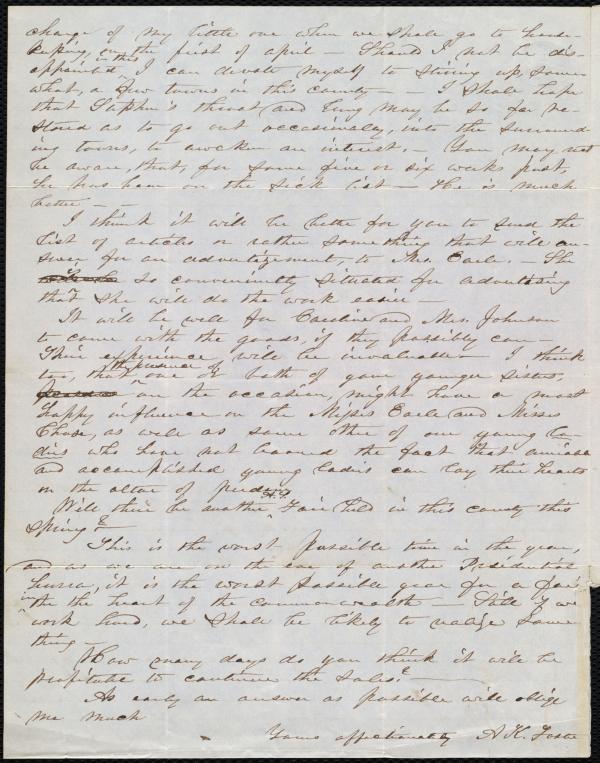 charge of my little one when we shall go to house-
keeping, on the first of april — Should I not be dis-
appointed in this, I can devote myself to stirring up, some
what, a few towns in this county — — I shall hope
that Stephen's throat and lung may be so far re-
stored as to go out occasionally, into the surround
ing towns, to awaken an interest. — You may not
be aware, that, for some five or six weeks past,
he has been on the sick list — He is much
better — —
I think it will be better for you to send the
list of articles or rather something that will an-
swer for an advertizement, to Mrs. Earle. — She
is so conveniently situated for advertising
that she will do the work easier —
It will be well for Caroline and Mrs. Johnson
to come with the goods, if they possibly can —
Their experience, will be invaluable — I think
too, that the presence of one or both of your younger sisters,
on the occasion, might have a most
happy influence on the Misses Earle and Misses
Chase, as well as some other of our young la-
dies who have not learned the fact that amiable
and accomplished young ladies can lay their hearts
on the altar of
Will there be another A.S. Fair held in this county this
spring?
This is the worst possible time in the year,
and as we are on the eve of another Presidential
hurra, it is the worst possible year for a fair
in the heart of the commonwealth — Still if we
work hard, we shall be likely to realize some
thing —
How many days do you think it will be
profitable to continue the sales?
As early an answer as possible will oblige
me much
Yours affectionately A. K. Foster